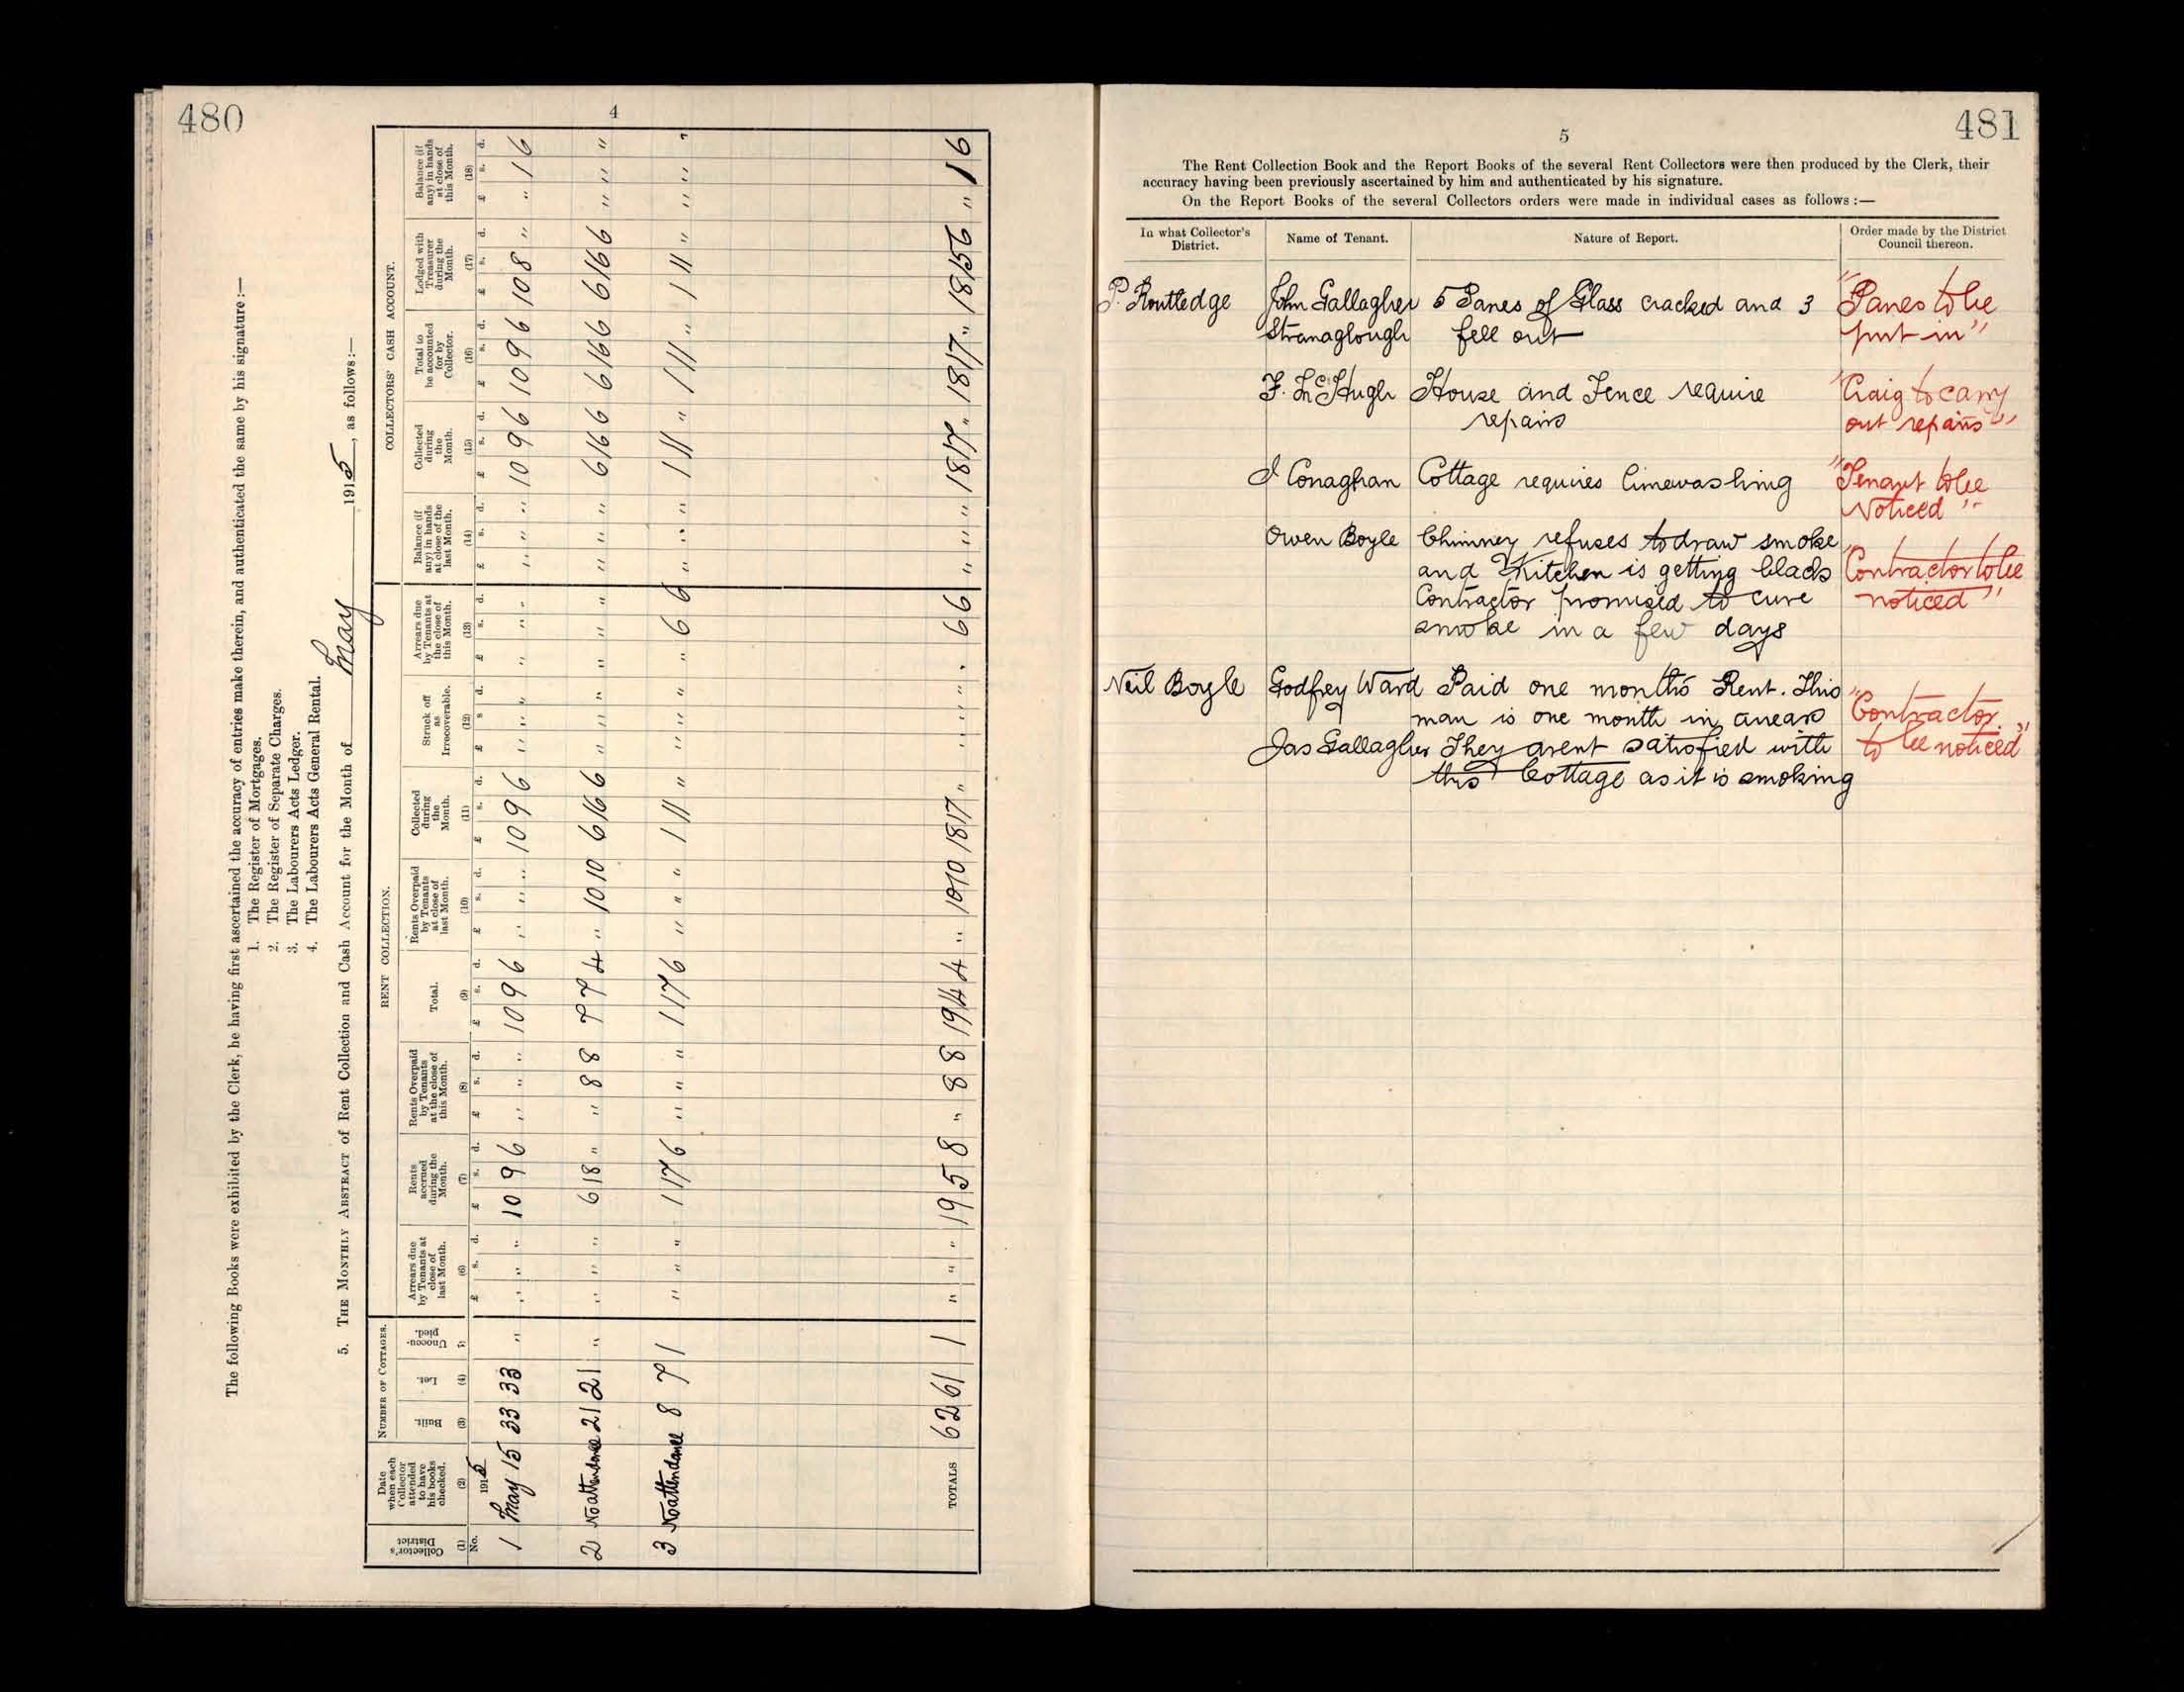 480
4
The following Books were exhibited by the Clerk, he having first ascertained the accuracy of entries make therein, and authenticated the same by his signature :—
1. The Register of Mortgages.
2. The Register of Separate Charges.
3. The Labourers Acts Ledger.
4. The Labourers Acts General Rental.
5. THE MONTHLY ABSTRACT of Rent Collection and Cash Account for the Month of May 1915, as follows :—
NUMBER OF COTTAGES. RENT COLLECTION. COLLECTORS' CASH ACCOUNT.
Collector's District (1) No.
Date when each Collector attended to have his books checked. (2) 1915
Built. (3)
Let. (4)
Unoccu-pied.
Arrears due by Tenants at close of last Month. (6) £ s. d.
Rents accrued during the Month. (7) £ s. d.
Rents Overpaid by Tenants at the close of this Month. (8) £ s. d.
Total. (9) £ s. d.
Rents Overpaid by Tenants at close of last Month. (10) £ s. d.
Collected during the Month. (11) £ s. d.
Struck off as Irrecoverable. (12) £ s. d.
Arrears due by Tenants at the close of this Month. (13) £ s. d.
Balance (if any) in hands at close of the last Month. (14) £ s. d.
Collected during the Month. (15) £ s. d.
Total to be accounted for by Collector. (16) £ s. d.
Lodged with Treasurer during the Month. (17) £ s. d.
Balance (if any) in hands at close of this Month. (18) £ s. d.
1 May 15 33 33 " " " " 10 9 6 " " " 10 9 6 " " " 10 9 6 " " " " " " " " " 10 9 6 10 9 6 10 8 " " 1 6
2 No attendance 21 21 " " " " 6 18 " " 8 8 7 7 4 " 10 10 6 16 6 " " " " " " " " " 6 16 6 6 16 6 6 16 6 " " "
3 No attendance 8 7 1 " " " 1 17 6 " " " 1 17 6 " " " 1 11 " " " " " 6 6 " " " 1 11 " 1 11 " 1 11 " " " "
TOTALS 62 61 1 " " " 19 5 8 " 8 8 19 14 4 " 10 10 18 17 " " " " " 6 6 " " " 18 17 " 18 17 " 18 15 6 " 1 6
481
5
The Rent Collection Book and the Report Books of the several Rent Collectors were then produced by the Clerk, their
accuracy having been previously ascertained by him and authenticated by his signature.
On the Report Books of the several Collectors orders were made in individual cases as follows :—
In what Collector's District. Name of Tenant. Nature of Report. Order made by the District Council thereon.
P. Routledge John Gallagher 5 Panes of Glass cracked and 3 "Panes to be
Stranaglough fell out put in"
F. McHugh House and Fence require "Craig to carry
repairs out repairs"
J Conaghan Cottage requires limewashing "Tenant to be
Noticed"
Owen Boyle Chimney refuses to draw smoke
and Kitchen is getting black "Contractor to be
Contractor promised to cure noticed"
smoke in a few days
Neil Boyle Godfrey Ward Paid one months Rent. This
man is one month in arears "Contractor
Jas Gallagher They arent satisfied with to be noticed"
this Cottage as it is smoking